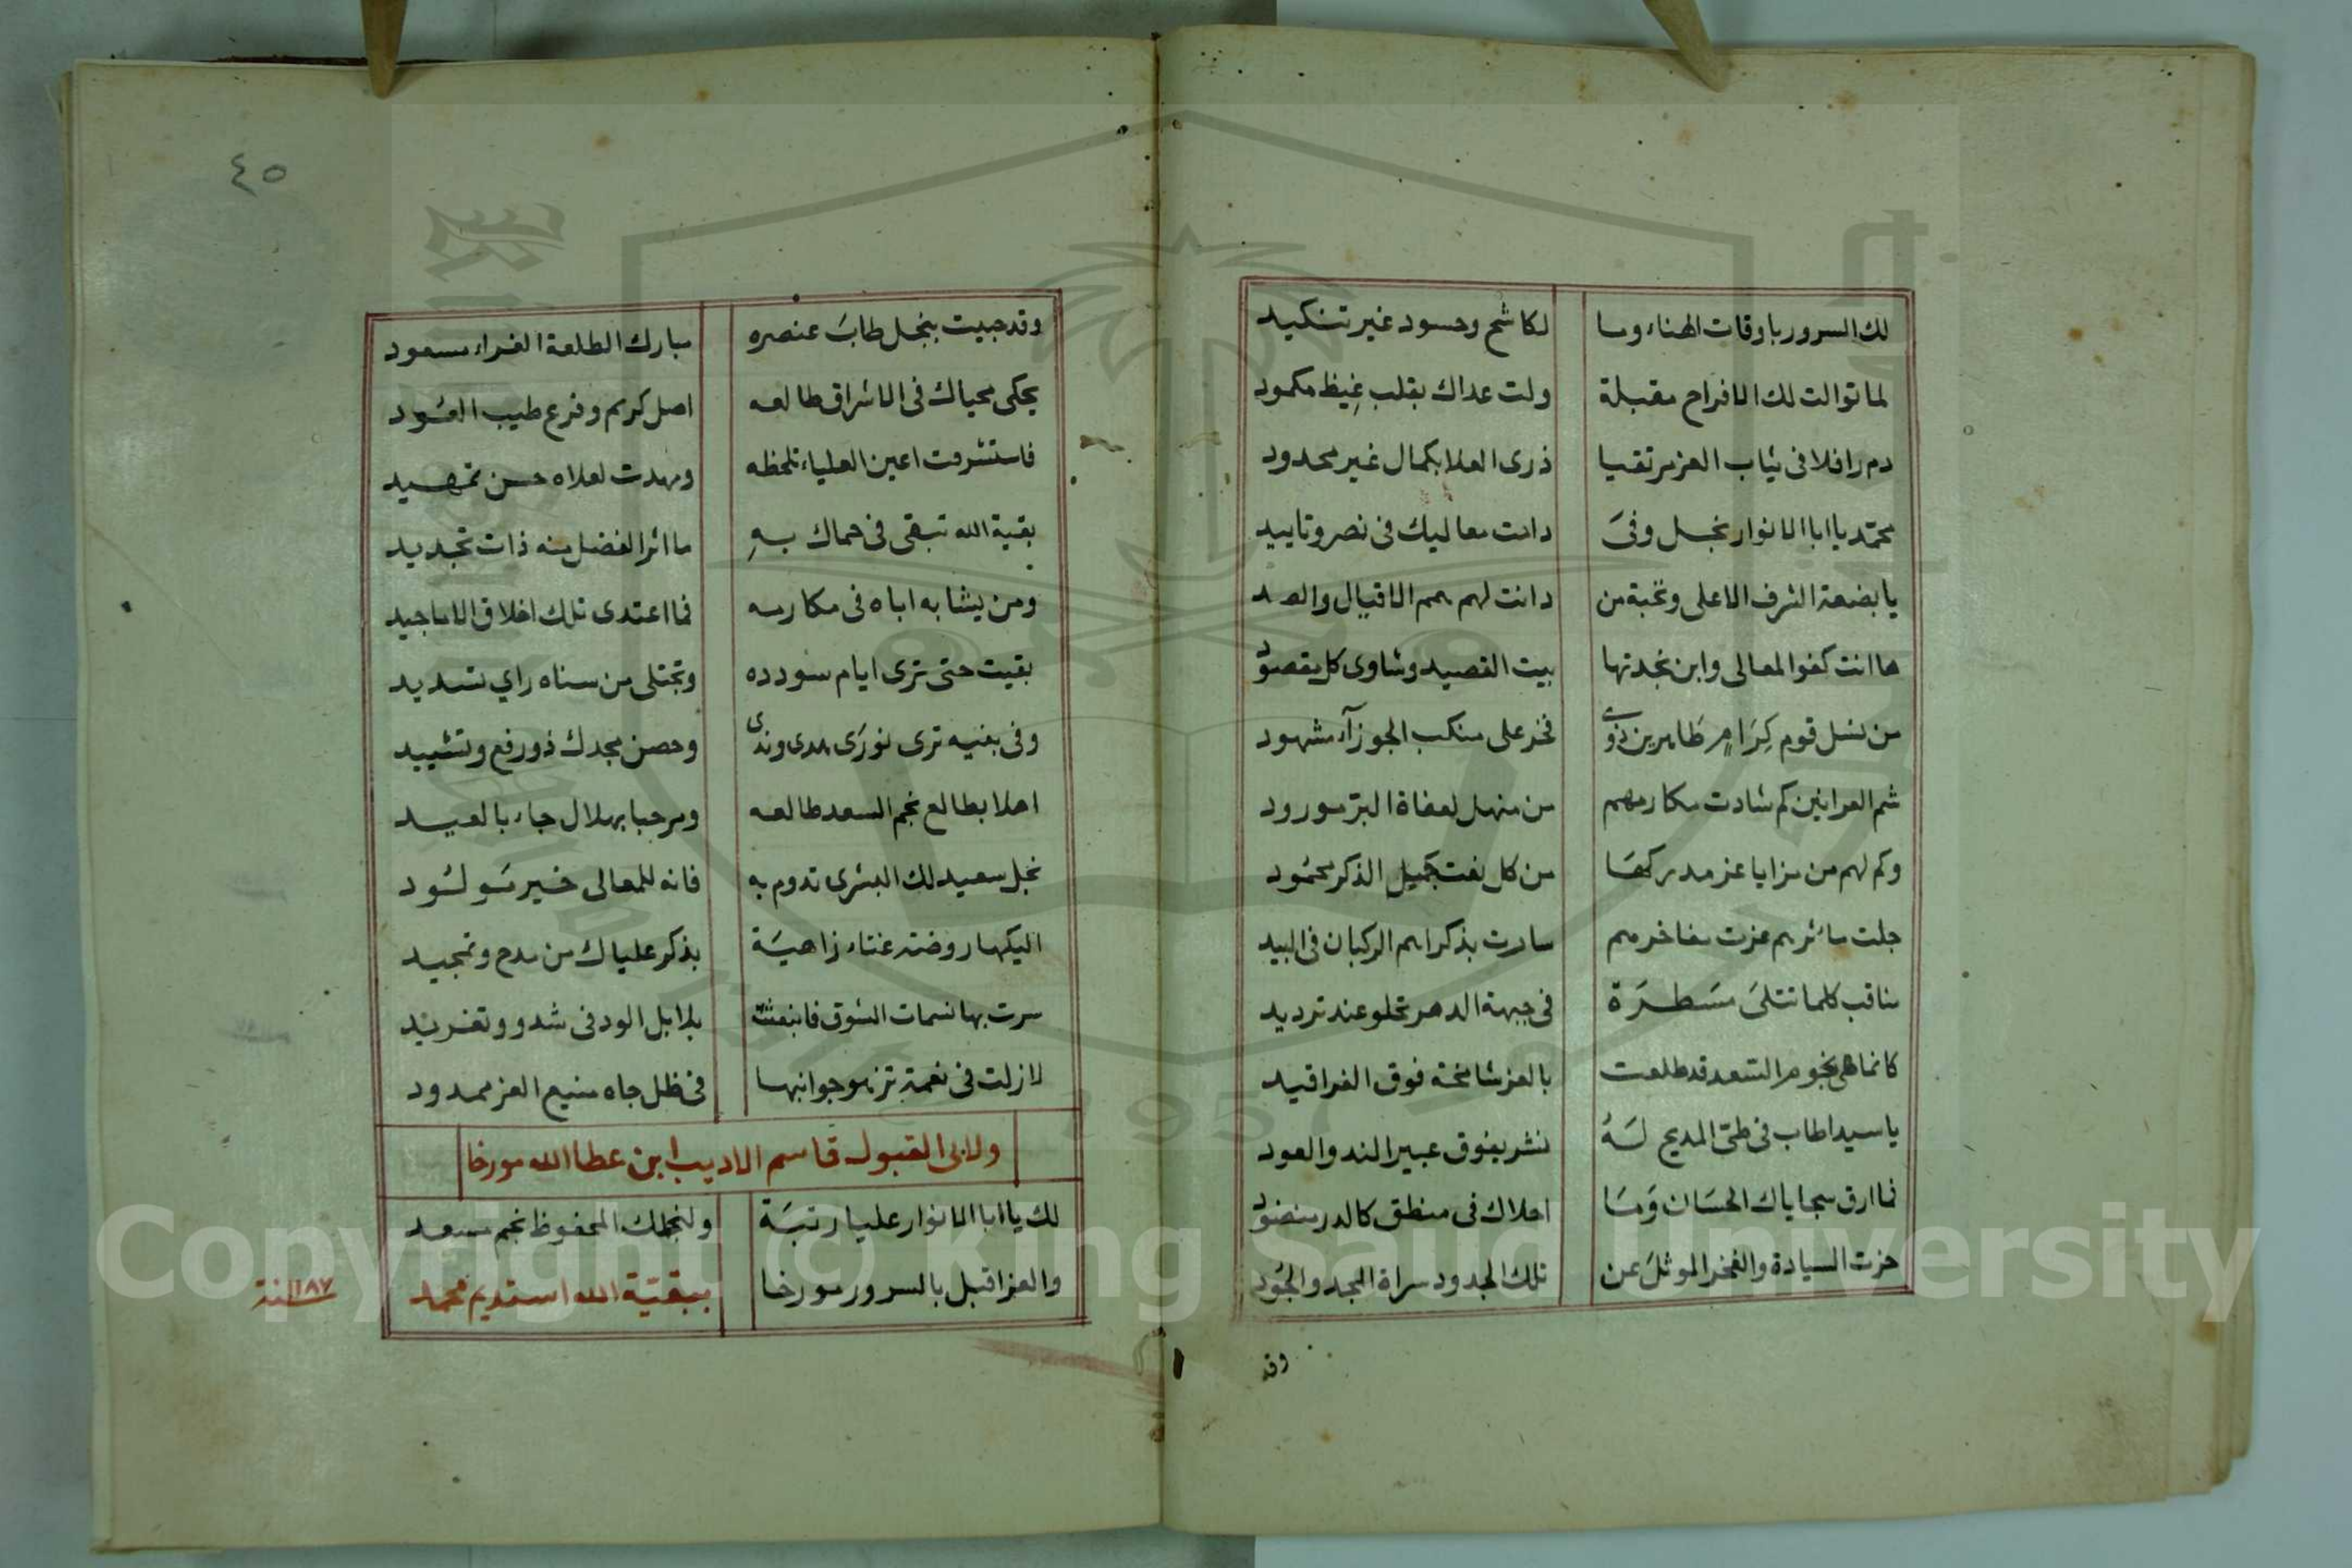 لك السرور باوقات الهناء وما لكاشح وحسود غير تنكيد
لما توالت لك الافراح مقبلة ولت عداك بقلب غيظ مكمود
دم رافلا فى ثياب العز مرتقيا ذرى العلا بكمال غير محدود
محمّد يا ابا الانوار نجل وفىَ دامت معاليك فى نصر وتاييد
يا بضعة الشرف الاعلى ونخبة من دانت لهم همم الاقيال والصيد
ها انت كفو المعالى وابن نجدتها بيت القصيد وشاوى كل مقصود
من نسل قوم كِرَامٍ طَاهرين ذوي فخر على منكب الجوزآء مشهود
شم العرانين كم شادت مكارمهم من منهل لعفاة البرّ مورود
وكم لهم من مزايا عز مدركهَا من كل نعت جميل الذكر محمُود
جلت مآثرهم عزت مفاخرهم سارت بذكراهم الركبان فى البيد
مناقب كلما تتلىَ مسَطرَة فى جبهة الدهر تحلو عند ترديد
كانما هى نجوم السّعد قد طلعت بالعز شامخة فوق الفراقيد
يا سيدا طاب فى طىّ المديح لهُ نشر يفوق عبير الند والعود
فما ارق سجاياك الحسَان وَمَا احلاك فى منطق كالدر منضود
حزت السيادة والفخر الموثلَ عن تلك الجدود سراة المجد والجُود
وقد
٤٥
وقد حبيت بنجل طابَ عنصره مبارك الطلعة الغراء مسعود
يحكى محياك فى الاشراق طالعه اصل كريم وفرع طيب العُود
فاستشرفت اعين العلياء تلحظه ومهدت لعلاه حسن تمهيد
بقية الله تبقى فى حماك بهِ ماثر الفضل منه ذات تجديد
ومن يشابه اباه فى مكارمه فما اعتدى تلك اخلاق الاماجيد
بقيت حتى ترى ايام سودده وتجتلى من سناه راي تسديد
وفى بنيه ترى نورَى هدى وندى وحصن مجدك ذو رفع وتشييد
اهلا بطالع نجم السعد طالعه ومرحبا بهلال جاء بالعيد
نجل سعيد لك البشرى تدوم به فانه للمعالى خير مَولُود
اليكها روضة غناء زاهيَة بذكر علياك من مدح وتمجيد
سرت بها نسمات الشوق فانبعثت بلابل الود فى شدو وتغريد
لازلت فى نعمة تزهو جوانبها فى ظل جاه منيع العز ممدود
ولابى القبول قاسم الاديب ابن عطا الله مورخا
لك يا ابا الانوار عليا رتبَة ولنجلك المحفوظ نجم مسعد
والعز اقبل بالسرور مورخا ببقيّة الله استديم محمد
سنة ١١٨٧
Copyright © King Saud University
1957